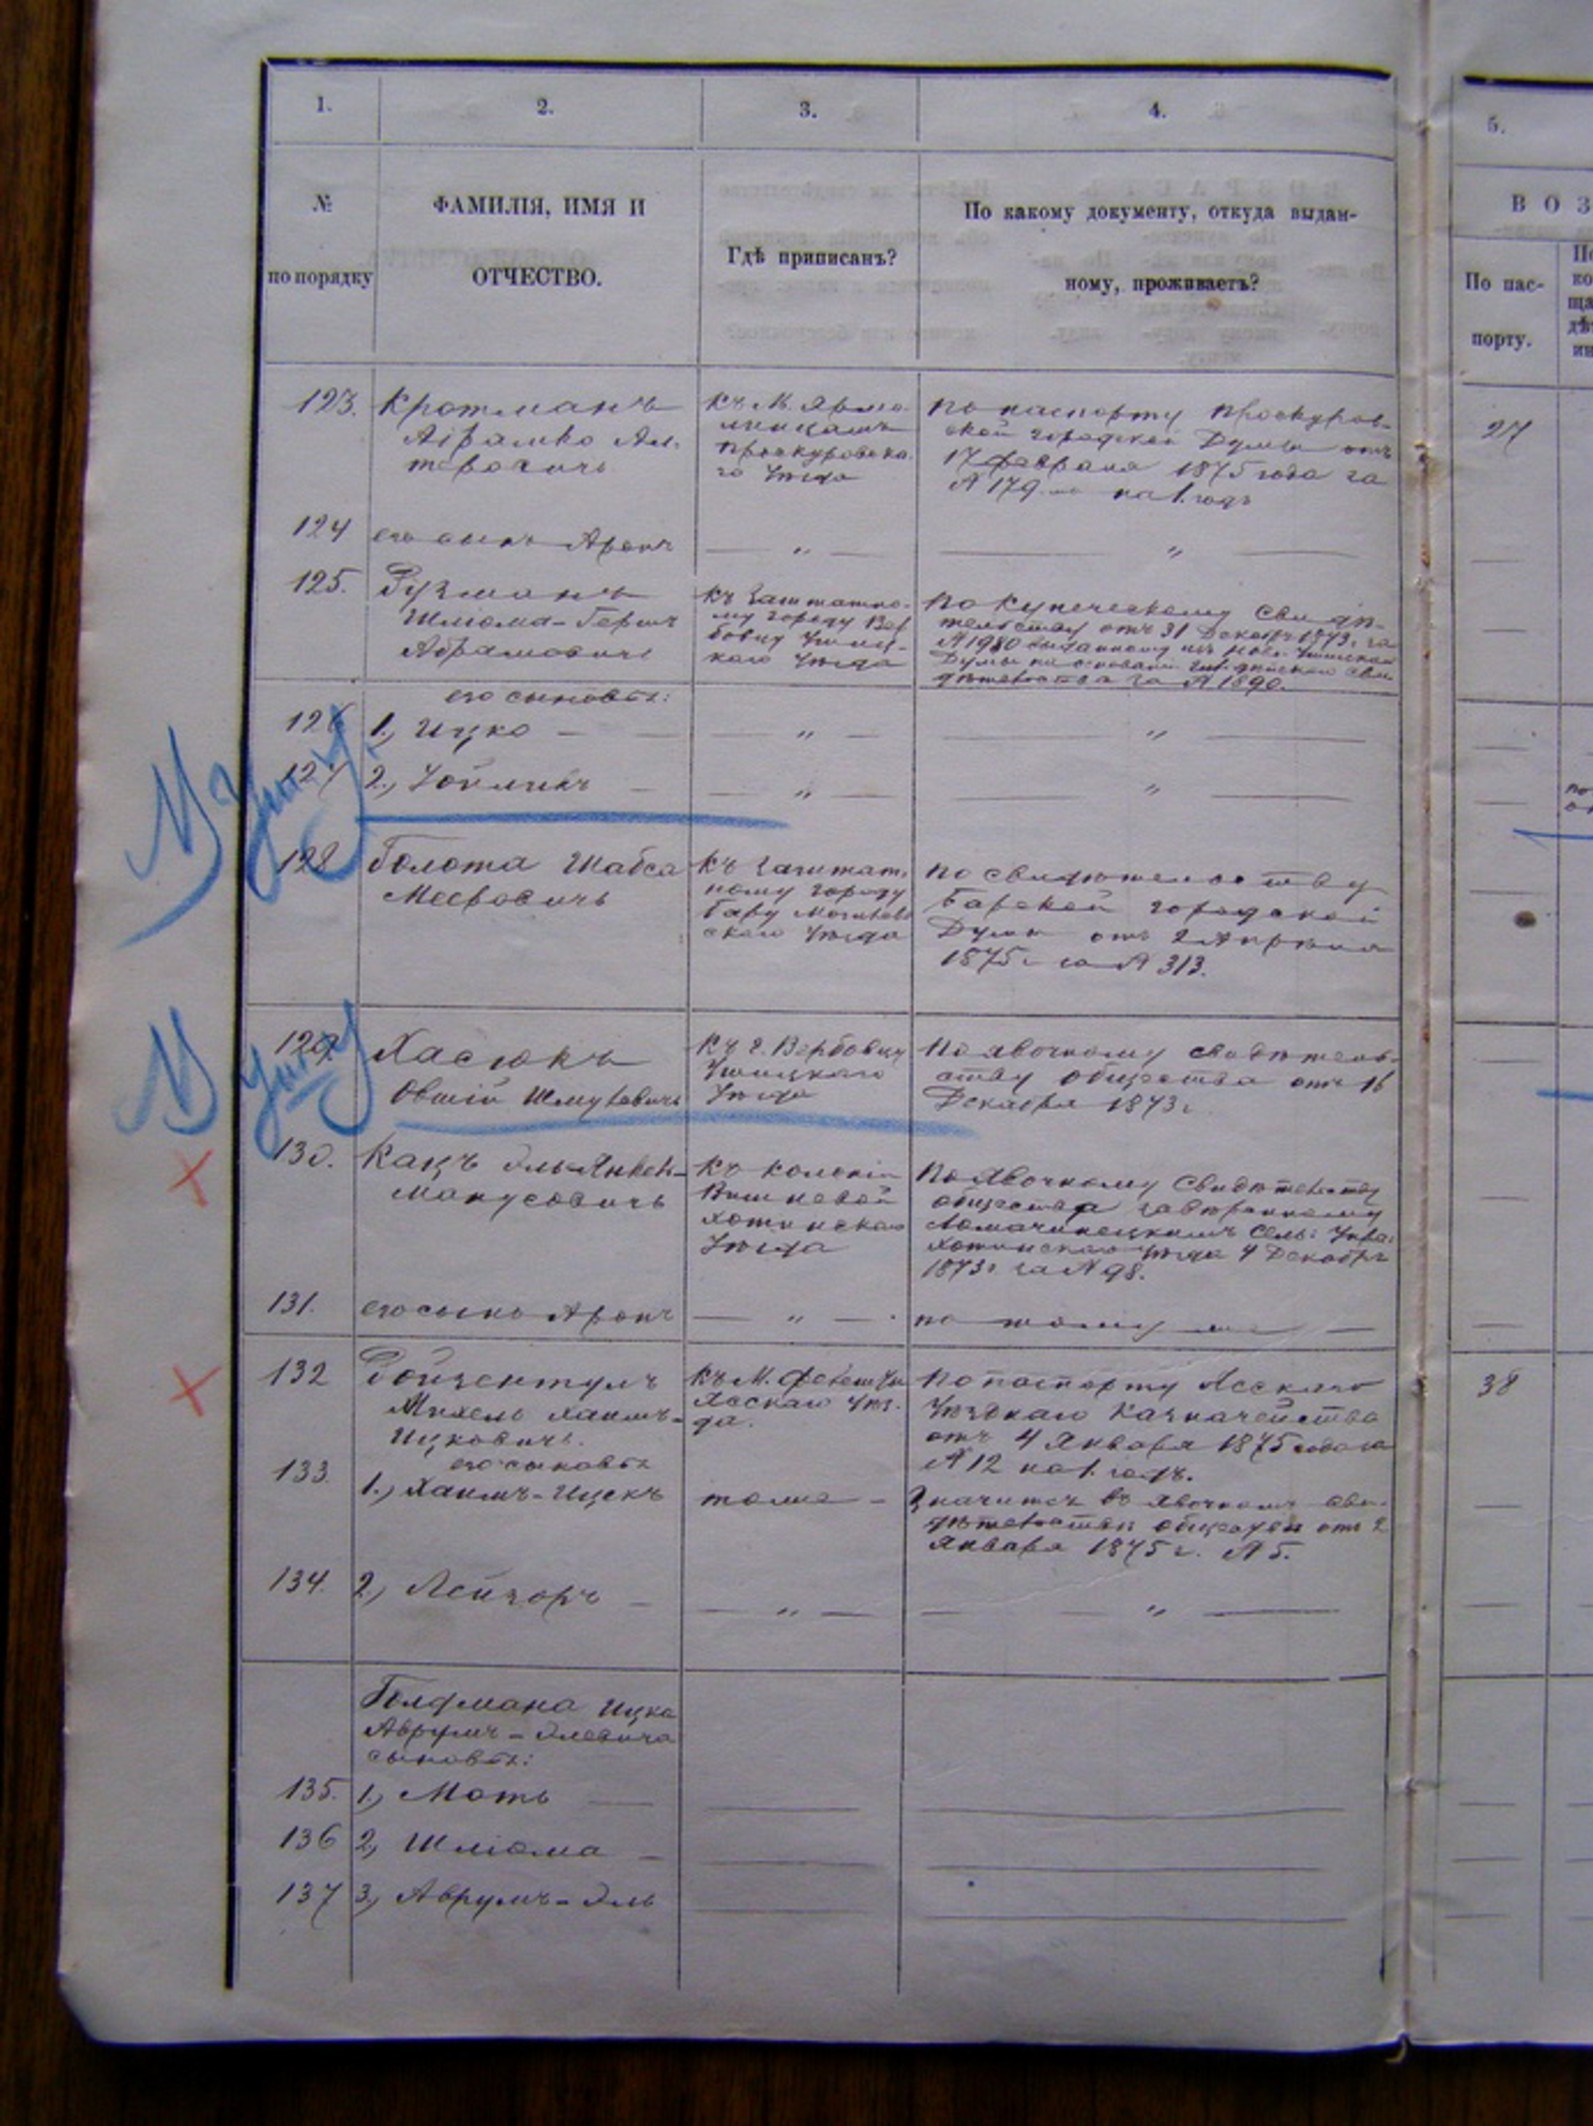 1.
2.
3.
4.
5.
№
по порядку
ФАМИЛІЯ, ИМЯ И
ОТЧЕСТВО.
Гдѣ приписанъ?
По какому документу, откуда выдан-
ному, проживаетъ?
ВОЗ
По пас-
порту.
123.
Кротманъ
Абрамко
къ М. Ярмо-
линцамъ
Проскуровска-
го Уѣзда
По паспорту Проскуров-
ской городской Думы отъ
17 февраля 1875 года за
№ 179 на 1. годъ
27
124
его сынъ Аронъ
— " —
— " —
125.
Гузманъ
Шлiома-Гершъ
Абрамовичъ
къ Заштатно-
му городу Вер
бовцу Ушиц-
каго Уѣзда
По Купеческому свидѣ-
тельству отъ 31 Декабр 1873 г. за
№ 1980 выданному изъ Ушицкой
Думы на основаніи
за № 1890.
его сыновья:
126
1., Ицко —
— " —
— " —
127
2., Зойликъ —
— " —
— " —
128
Болота Шабса
Мееровичъ
къ Заштат-
ному городу
Бару Могилев
скаго Уѣзда
По свидѣтельству
Барской городской
Думы отъ 2 Апрѣля
1875 г. за № 313.
129.
Хасюкъ
Овшій Шмулевичъ
къ г. Вербовцу
Ушицкаго
Уѣзда
По явочному свидѣтель-
ству общества отъ 16
Декабря 1873 г.
130.
Кацъ Эль-Янкель-
Манусовичъ
къ колоніи
Вишневой
Хотинскаго
Уѣзда
По явочному свидѣтельству
общества завѣренному
Ломачинецкимъ Сель: Упра:
Хотинскаго Уѣзда 4 Декабря
1873 г. за № 98.
131.
его сынъ Аронъ
— " —
по тому же —
132
Ройзентулъ
Михель Хаимъ-
Ицковичъ.
къ М.
Ясскаго Уѣз-
да.
По паспорту Ясскаго
Уѣзднаго Казначейства
отъ 4 Января 1875 года за
№ 12 на 1. годъ.
38
его сыновья
133.
1., Хаимъ-Ицекъ
тоже —
Значится въ явочномъ сви-
дѣтельствѣ общества отъ 2
Января 1875 г. № 5.
134.
2., Лейзоръ —
— " —
— " —
Гелдмана Ицка
Аврумъ-Элевича
сыновья:
135.
1., Моть —
136
2, Шлiома —
137
3, Аврумъ-Эль